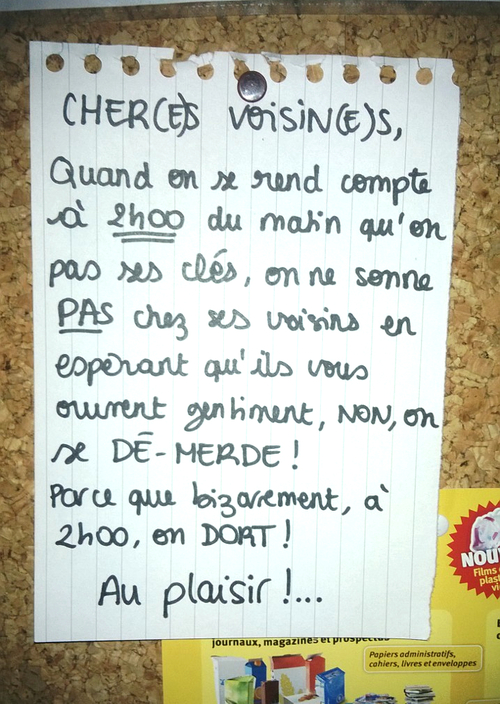 CHER(E)S VOISIN(E)S,
Quand on se rend compte
à 2h00 du matin qu'on
pas ses clés, on ne sonne
PAS chez ses voisins en
espérant qu'ils vous
ouvrent gentiment, NON, on
se DÉ-MERDE !
Parce que bizarement, à
2h00, on DORT !
Au plaisir !...
NOUV
Films
plast
journaux, magazines et prospectus
Papiers administratifs,
cahiers, livres et enveloppes